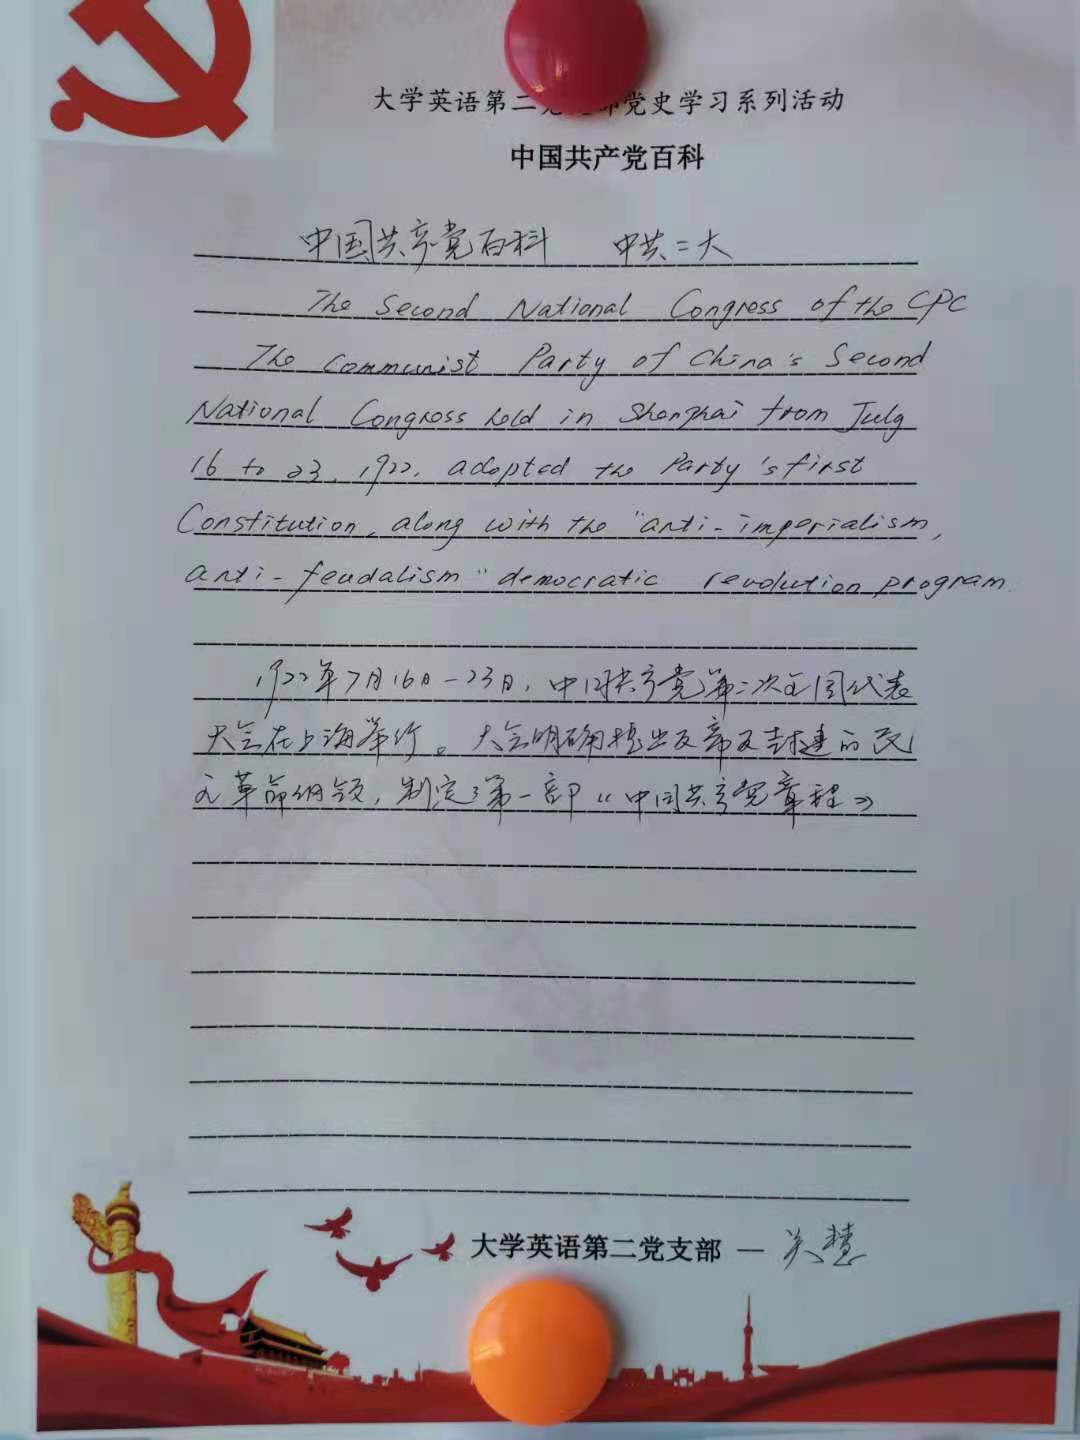 大学英语第二党支部党史学习系列活动
中国共产党百科
中国共产党百科 中共二大
The Second National Congress of the CPC
The Communist Party of China's Second
National Congress held in Shanghai from July
16 to 23, 1922, adopted the Party's first
Constitution, along with the "anti-imperialism,
anti-feudalism" democratic revolution program.
1922年7月16日-23日,中国共产党第二次全国代表
大会在上海举行。大会明确提出反帝反封建的民
主革命纲领,制定了第一部《中国共产党章程》
大学英语第二党支部 — 关慧